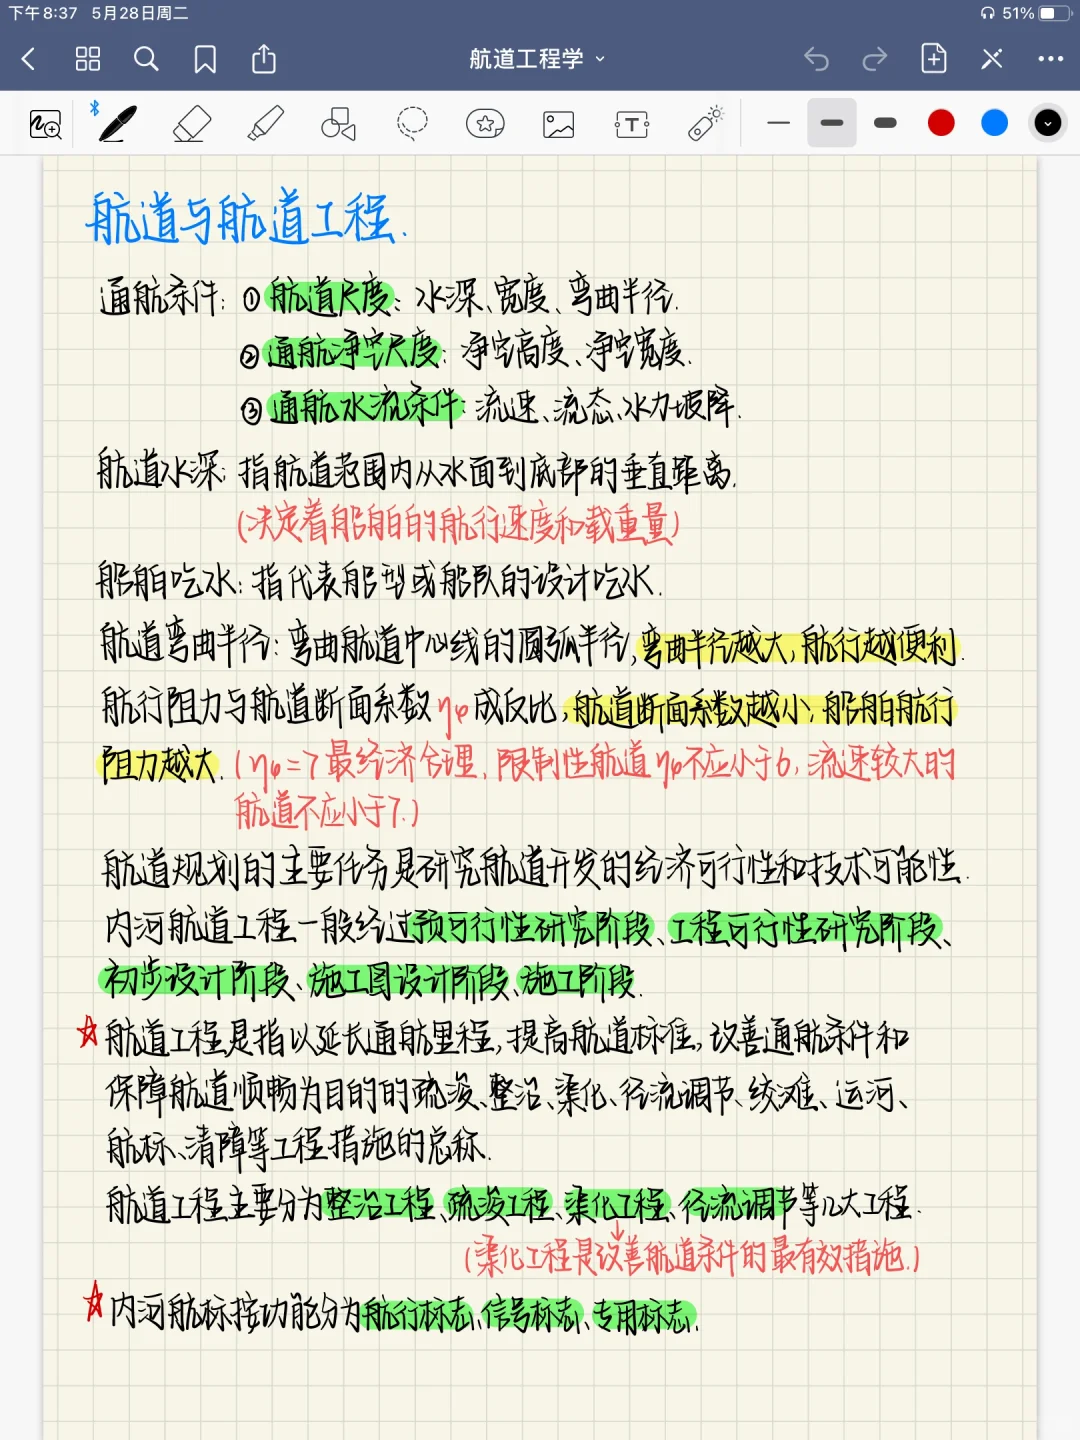 下午8:37 5月28日周二 51%
航道工程学
航道与航道工程.
通航条件: ①航道尺度: 水深、宽度、弯曲半径.
②通航净空尺度: 净空高度、净空宽度.
③通航水流条件: 流速、流态、水力坡降.
航道水深: 指航道范围内从水面到底部的垂直距离.
(决定着船舶的航行速度和载重量)
船舶吃水: 指代表船型或船队的设计吃水.
航道弯曲半径: 弯曲航道中心线的圆弧半径, 弯曲半径越大, 航行越便利.
航行阻力与航道断面系数ηφ成反比, 航道断面系数越小, 船舶航行
阻力越大. (ηφ=7最经济合理, 限制性航道ηφ不应小于6, 流速较大的
航道不应小于7.)
航道规划的主要任务是研究航道开发的经济可行性和技术可能性.
内河航道工程一般经过预可行性研究阶段、工程可行性研究阶段、
初步设计阶段、施工图设计阶段、施工阶段.
☆航道工程是指以延长通航里程, 提高航道标准, 改善通航条件和
保障航道顺畅为目的的疏浚、整治、渠化、径流调节、绞滩、运河、
航标、清障等工程措施的总称.
航道工程主要分为整治工程、疏浚工程、渠化工程、径流调节等几大工程.
(渠化工程是改善航道条件的最有效措施.)
☆内河航标按功能分为航行标志、信号标志、专用标志.